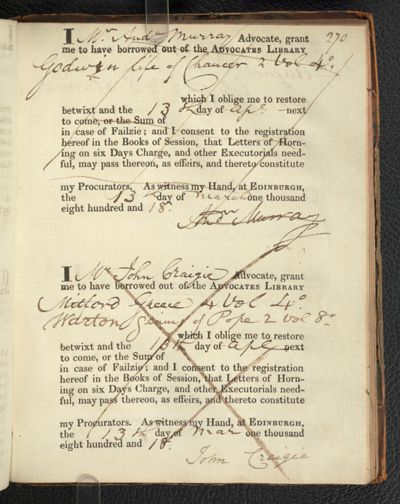 270
I Mr. Andw Murray Advocate, grant
me to have borrowed out of the ADVOCATES LIBRARY
Godwin life of Chaucer 2 Vol 4o.
which I oblige me to restore
betwixt and the 13th day of ap. next
to come, or the Sum of
in case of Failzie; and I consent to the registration
hereof in the Books of Session, that Letters of Horn-
ing on six Days Charge, and other Executorials need-
ful, may pass thereon, as effeirs, and thereto constitute
my Procurators. As witness my Hand, at EDINBURGH,
the 13th day of March one thousand
eight hundred and 18.
Andw Murray
I Mr John Craigie Advocate, grant
me to have borrowed out of the ADVOCATES LIBRARY
Mitford Greece 4 Vol 4o
Warton Genius of Pope 2 vol 8o
which I oblige me to restore
betwixt and the 13th day of apl next
to come, or the Sum of
in case of Failzie; and I consent to the registration
hereof in the Books of Session, that Letters of Horn-
ing on six Days Charge, and other Executorials need-
ful, may pass thereon, as effeirs, and thereto constitute
my Procurators. As witness my Hand, at EDINBURGH,
the 13th day of Mar one thousand
eight hundred and 18.
John Craigie